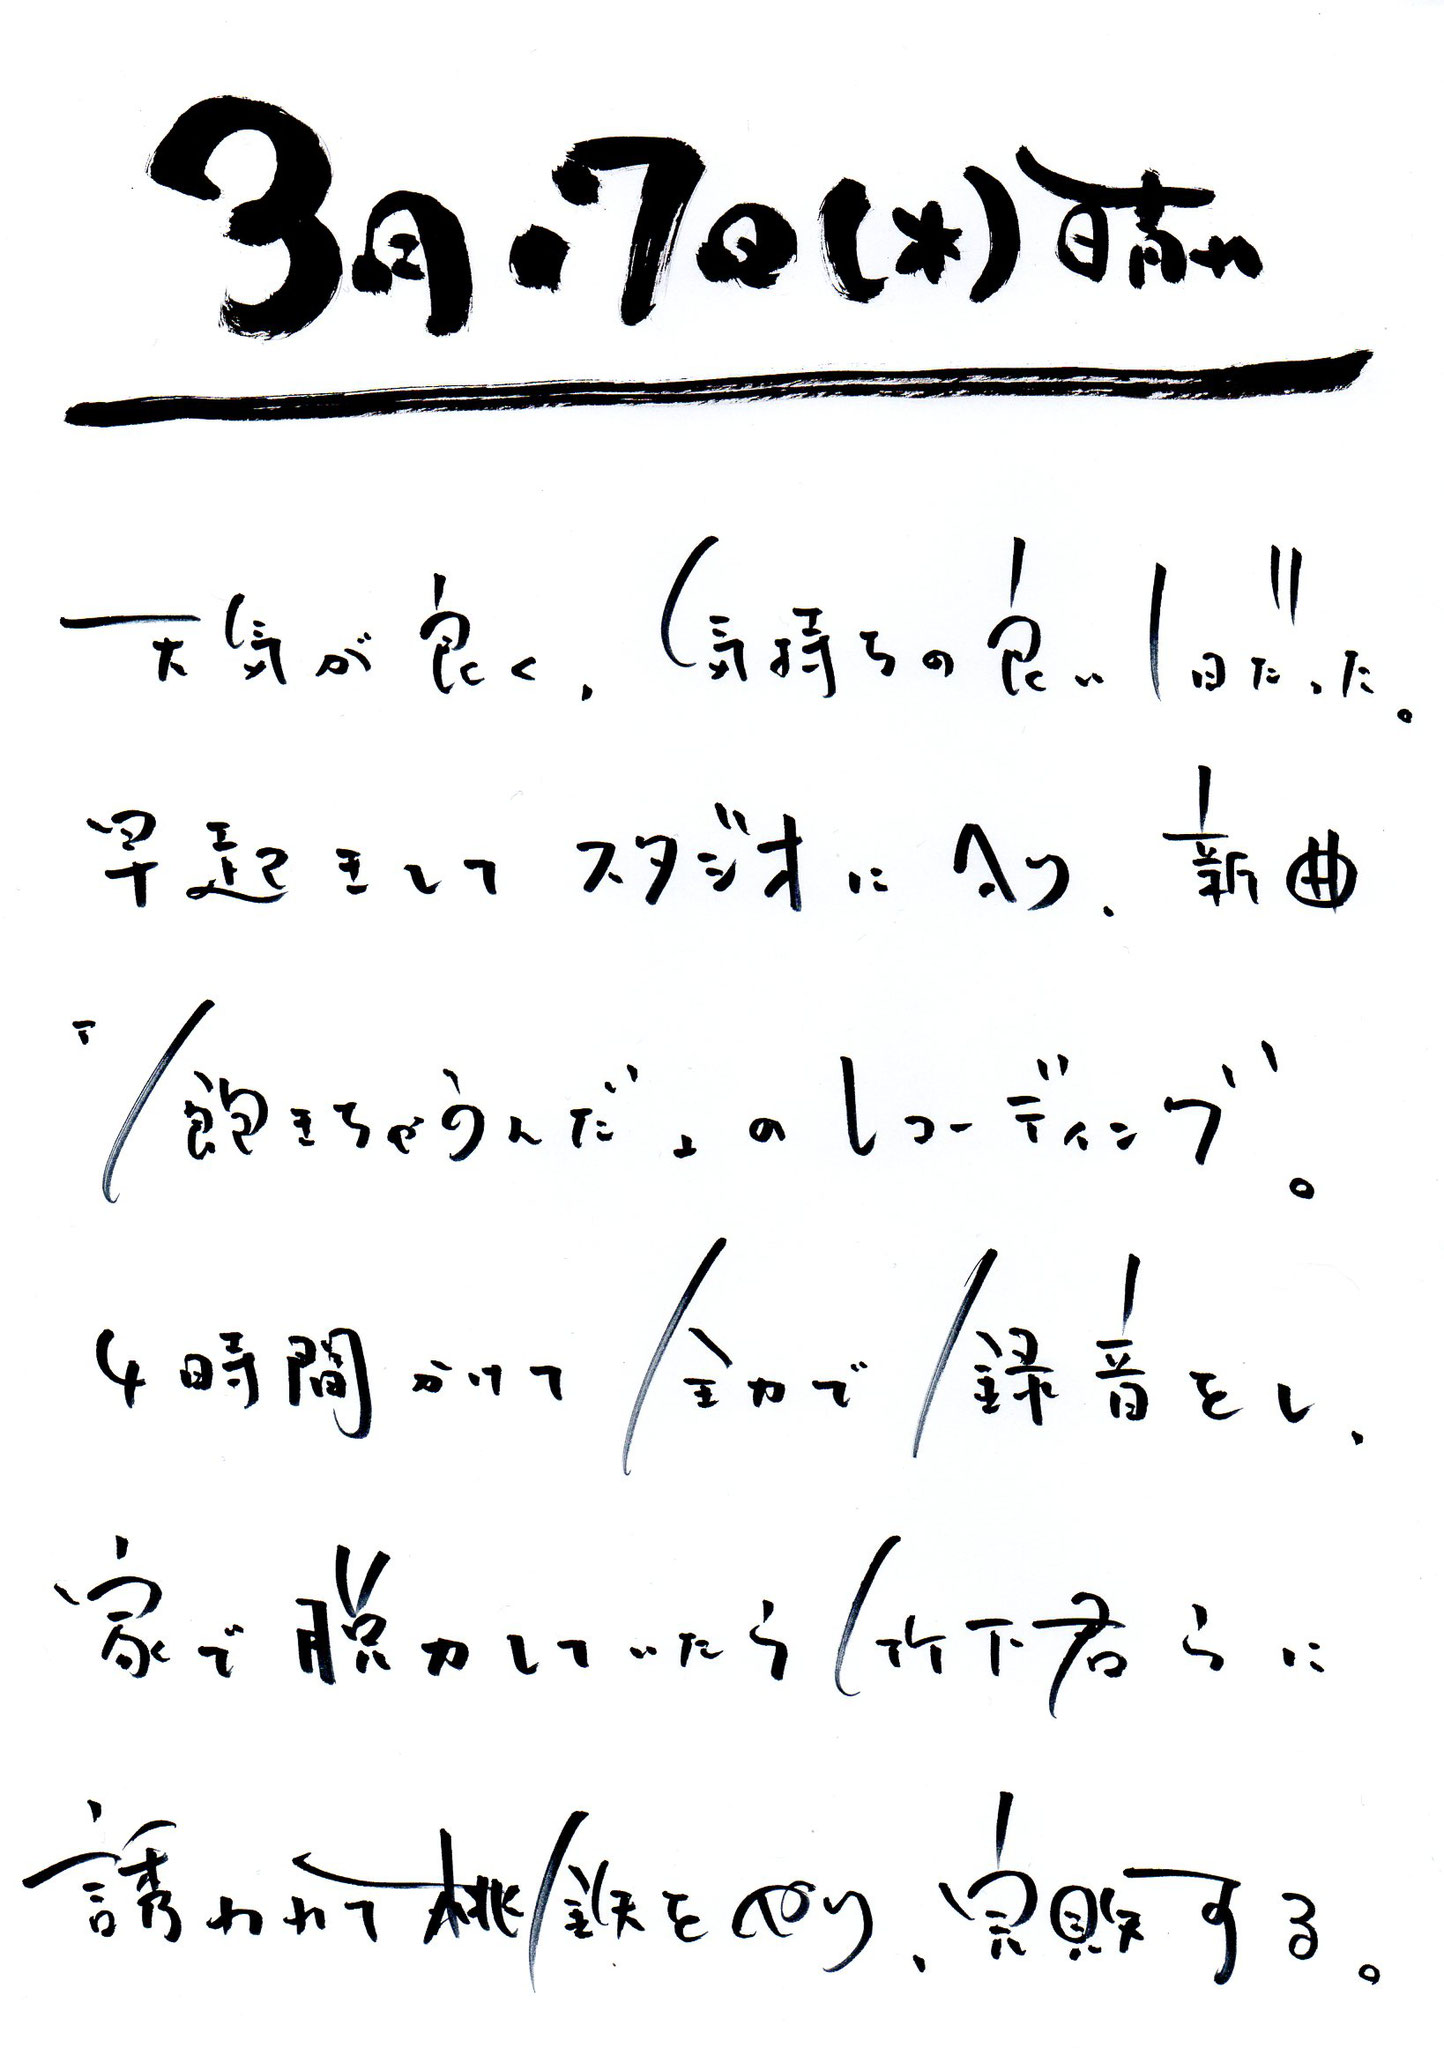 3月・7日(水)晴れ
天気が良く、気持ちの良い1日だった。
早起きしてスタジオに入り、新曲
『飽きちゃうんだ』のレコーディング。
4時間かけて全力で録音をし、
家で脱力していたら竹下君らに
誘われて桃鉄をやり、完敗する。